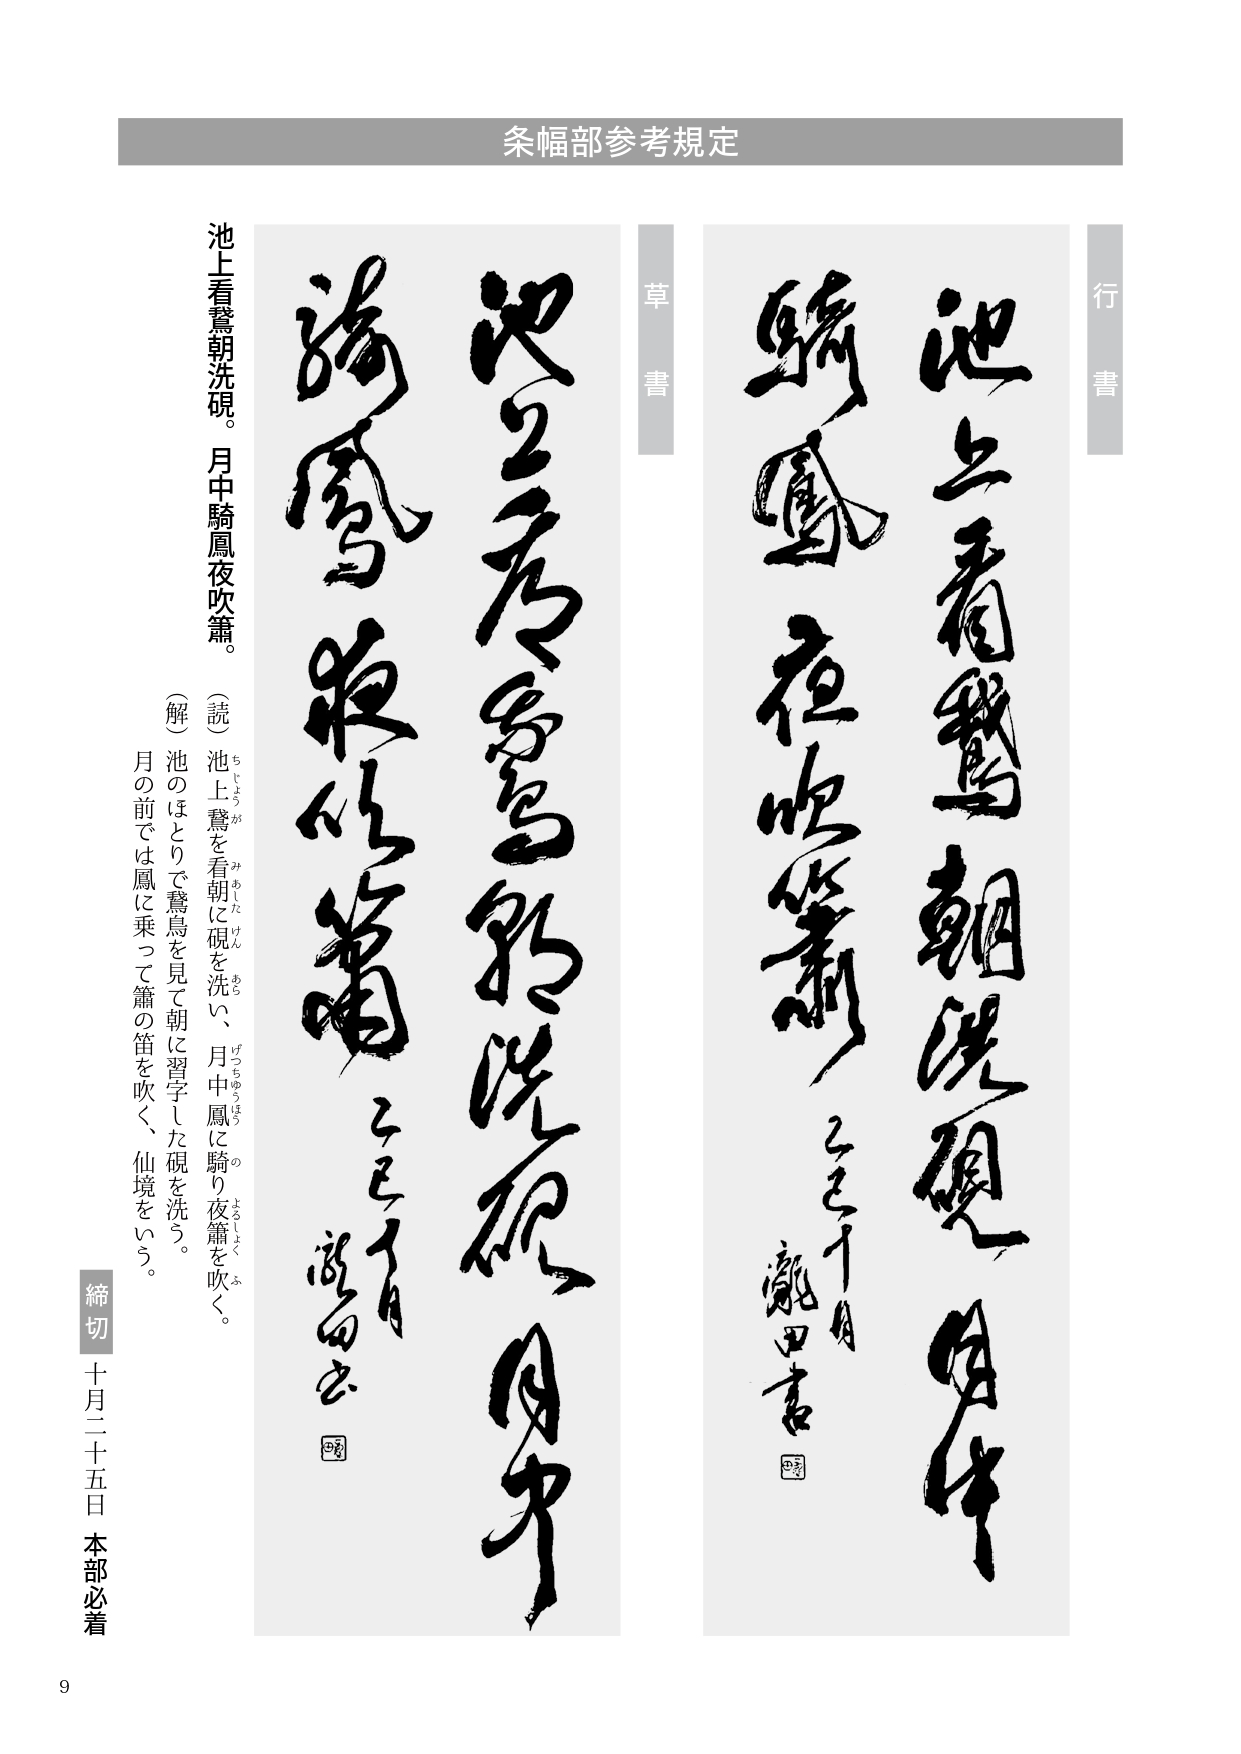 条幅部参考規定
行書
池上看鵞朝洗硯月中
騎鳳夜吹簫
乙巳十月
瀧田書
草書
池上看鵞朝洗硯月中
騎鳳夜吹簫
乙巳十月
瀧田書
池上看鵞朝洗硯。月中騎鳳夜吹簫。
（読）池上鵞を看朝に硯を洗い、月中鳳に騎り夜簫を吹く。
ちじょうが みあした けん あら げつちゆうほう の よるしょく ふ
（解）池のほとりで鵞鳥を見て朝に習字した硯を洗う。
月の前では鳳に乗って簫の笛を吹く、仙境をいう。
締切 十月二十五日 本部必着
9